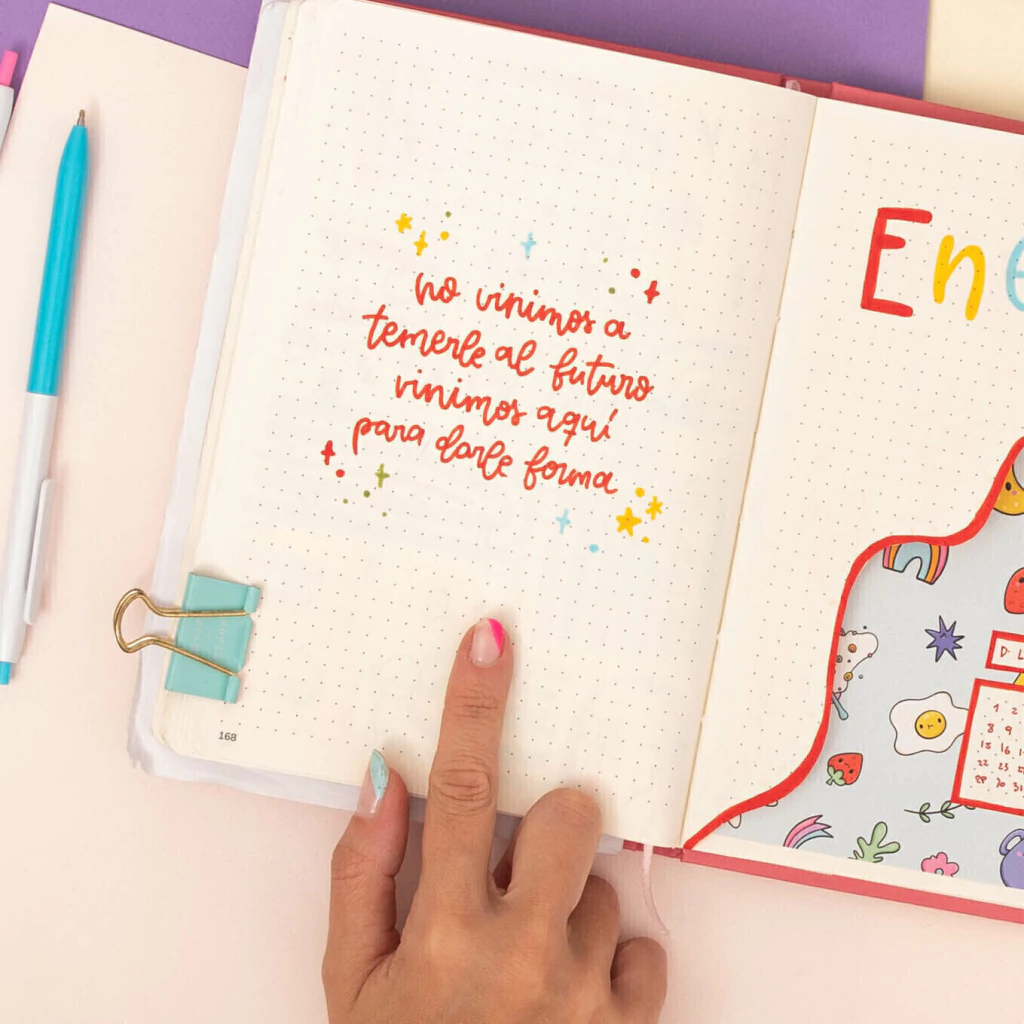 no vinimos a
temerle al futuro
vinimos aquí
para darle forma
168
Ene
D L
1 2
8 9
15 16 1
22 23
29 30 31